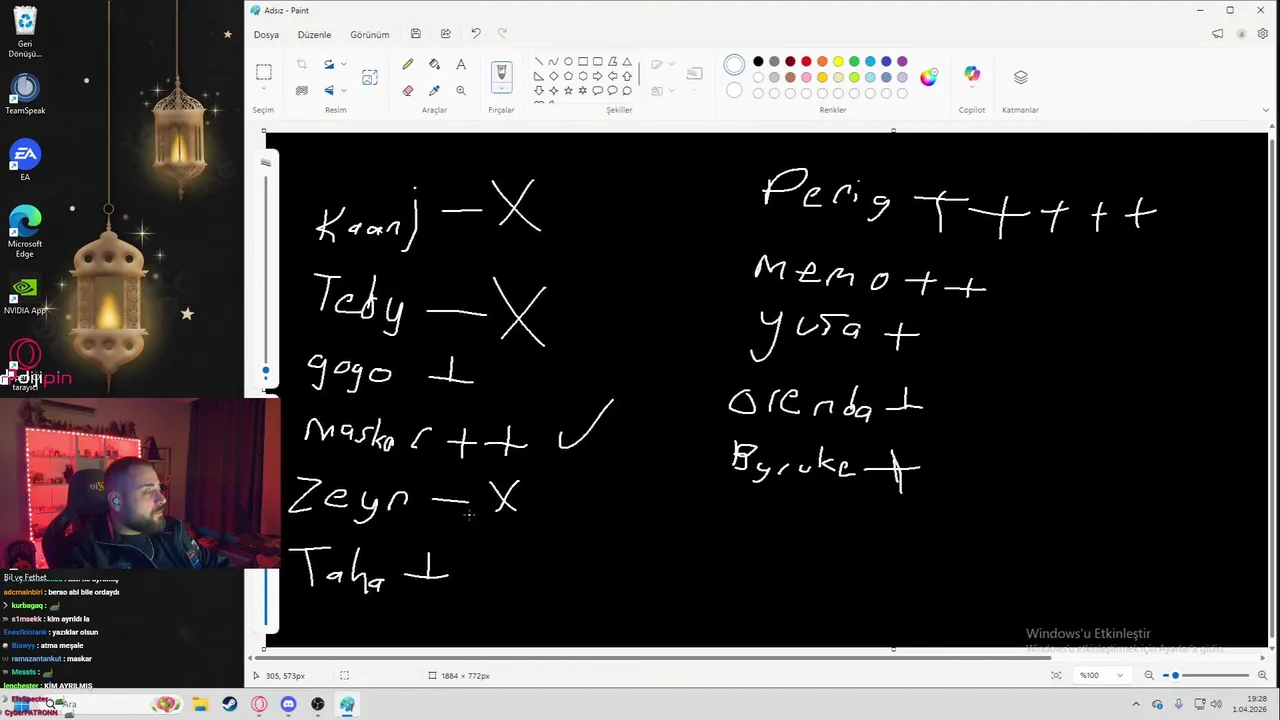 Adsız - Paint
Dosya Düzenle Görünüm
Seçim Resim Araçlar Fırçalar Şekiller Renkler Copilot Katmanlar
Geri
Dönüşü...
TeamSpeak
EA
Microsoft
Edge
NVIDIA App
tarayıcı
Kaanj — X
Teby — X
gogo +
maskar ++ ✓
Zeyn — X
Taha +
Perig + + + + +
memo ++
yusa +
orenda +
Byruke +
Bil ve Fethet
adcmainbiri : berao abi bile ordaydı
kurbagaq :
s1msekk : kim ayrıldı la
Enesfkintank : yazıklar olsun
Biawyy : atma meşale
ramazantankut : maskar
Messts :
lenchester : KİM AYRILMIŞ
EfeSpecter
CyberPATRONN :
Ara
Windows'u Etkinleştir
Windows'u etkinleştirmek için Ayarlar'a gidin.
305, 573px
1884 × 772px
%100
19:28
1.04.2026